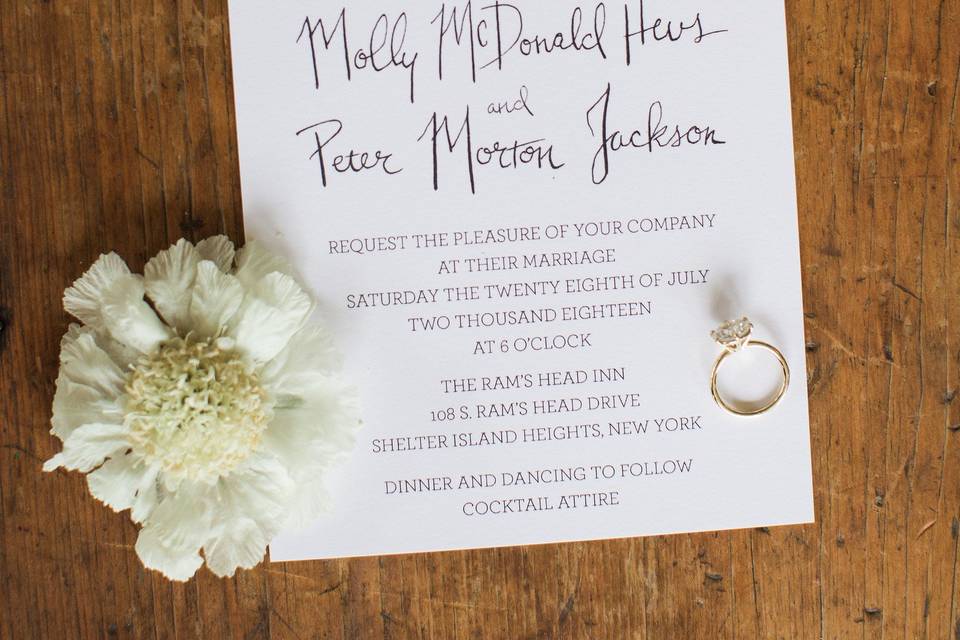 Molly McDonald Hews
and
Peter Morton Jackson
REQUEST THE PLEASURE OF YOUR COMPANY
AT THEIR MARRIAGE
SATURDAY THE TWENTY EIGHTH OF JULY
TWO THOUSAND EIGHTEEN
AT 6 O'CLOCK
THE RAM'S HEAD INN
108 S. RAM'S HEAD DRIVE
SHELTER ISLAND HEIGHTS, NEW YORK
DINNER AND DANCING TO FOLLOW
COCKTAIL ATTIRE